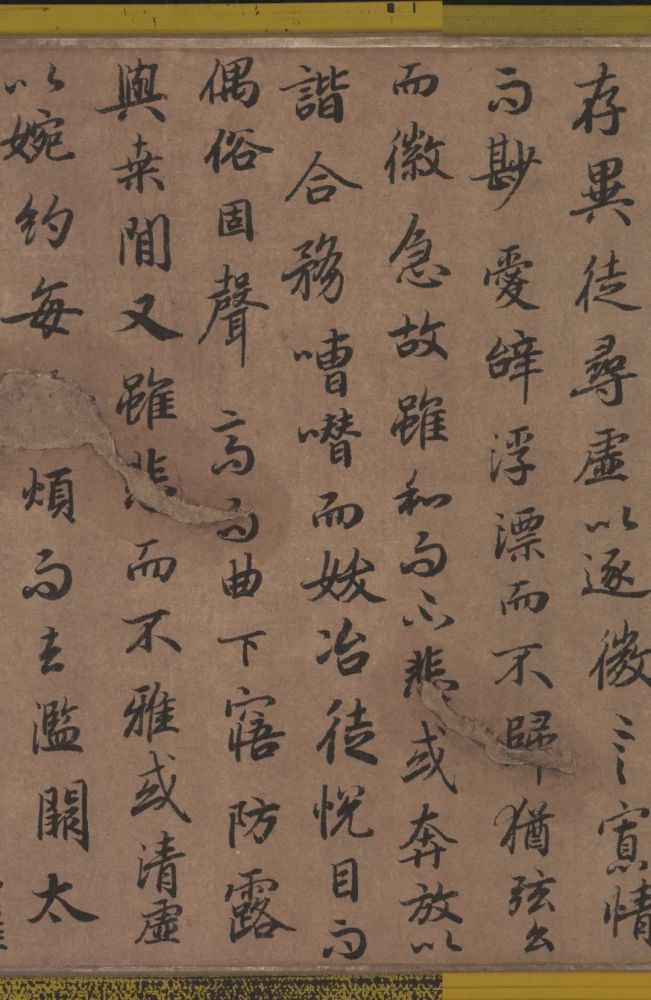 存異徒尋虛以逐微言寡情
而尠愛辭浮漂而不歸猶弦么
而徽急故雖和而不悲或奔放以
諧合務嘈噆而妖冶徒悅目而
偶俗固聲高而曲下寤防露
與桑間又雖悲而不雅或清虛
以婉約每煩而去濫闕太